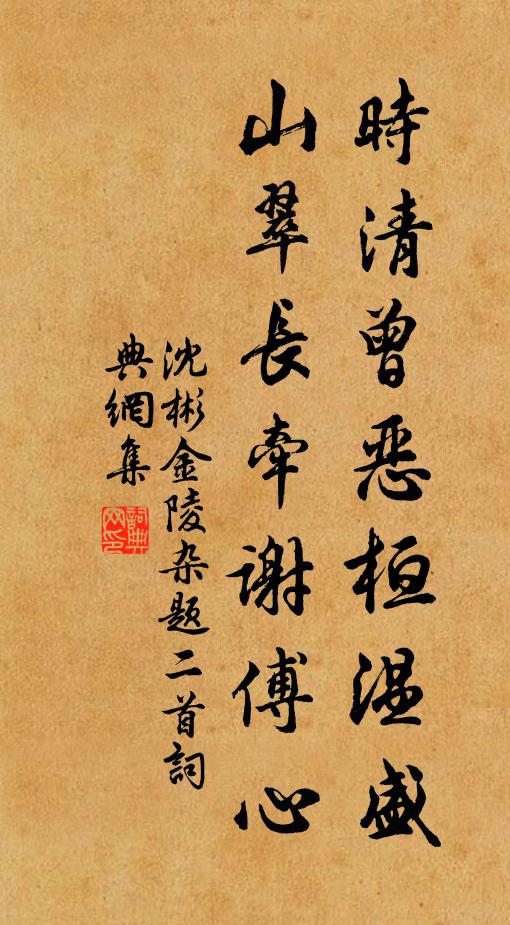 時清曾惡桓温盛
山翠長牽謝傅心
沈彬金陵杂題二首詞
典網集
詞典